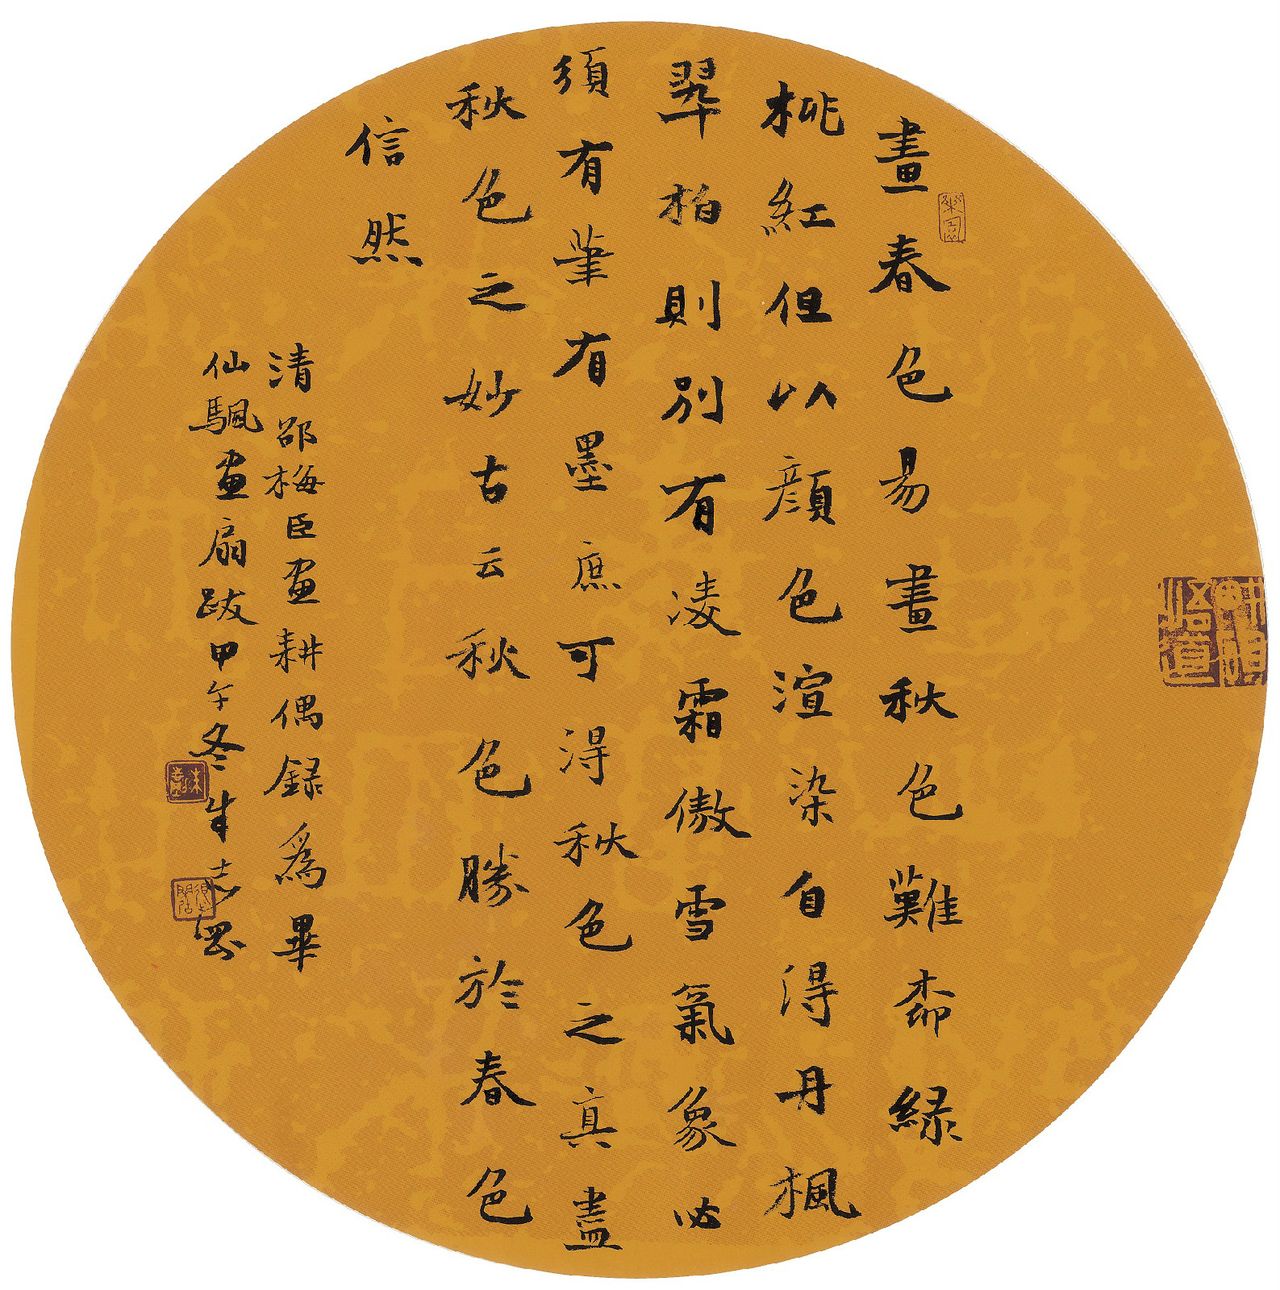 畫春色易畫秋色難柳綠
桃紅但以顏色渲染自得丹楓
翠柏則別有凌霜傲雪氣象必
須有筆有墨庶可得秋色之真盡
秋色之妙古云秋色勝於春色
信然
清邵梅臣畫耕偶錄為畢
仙颿畫扇跋甲午冬朱志